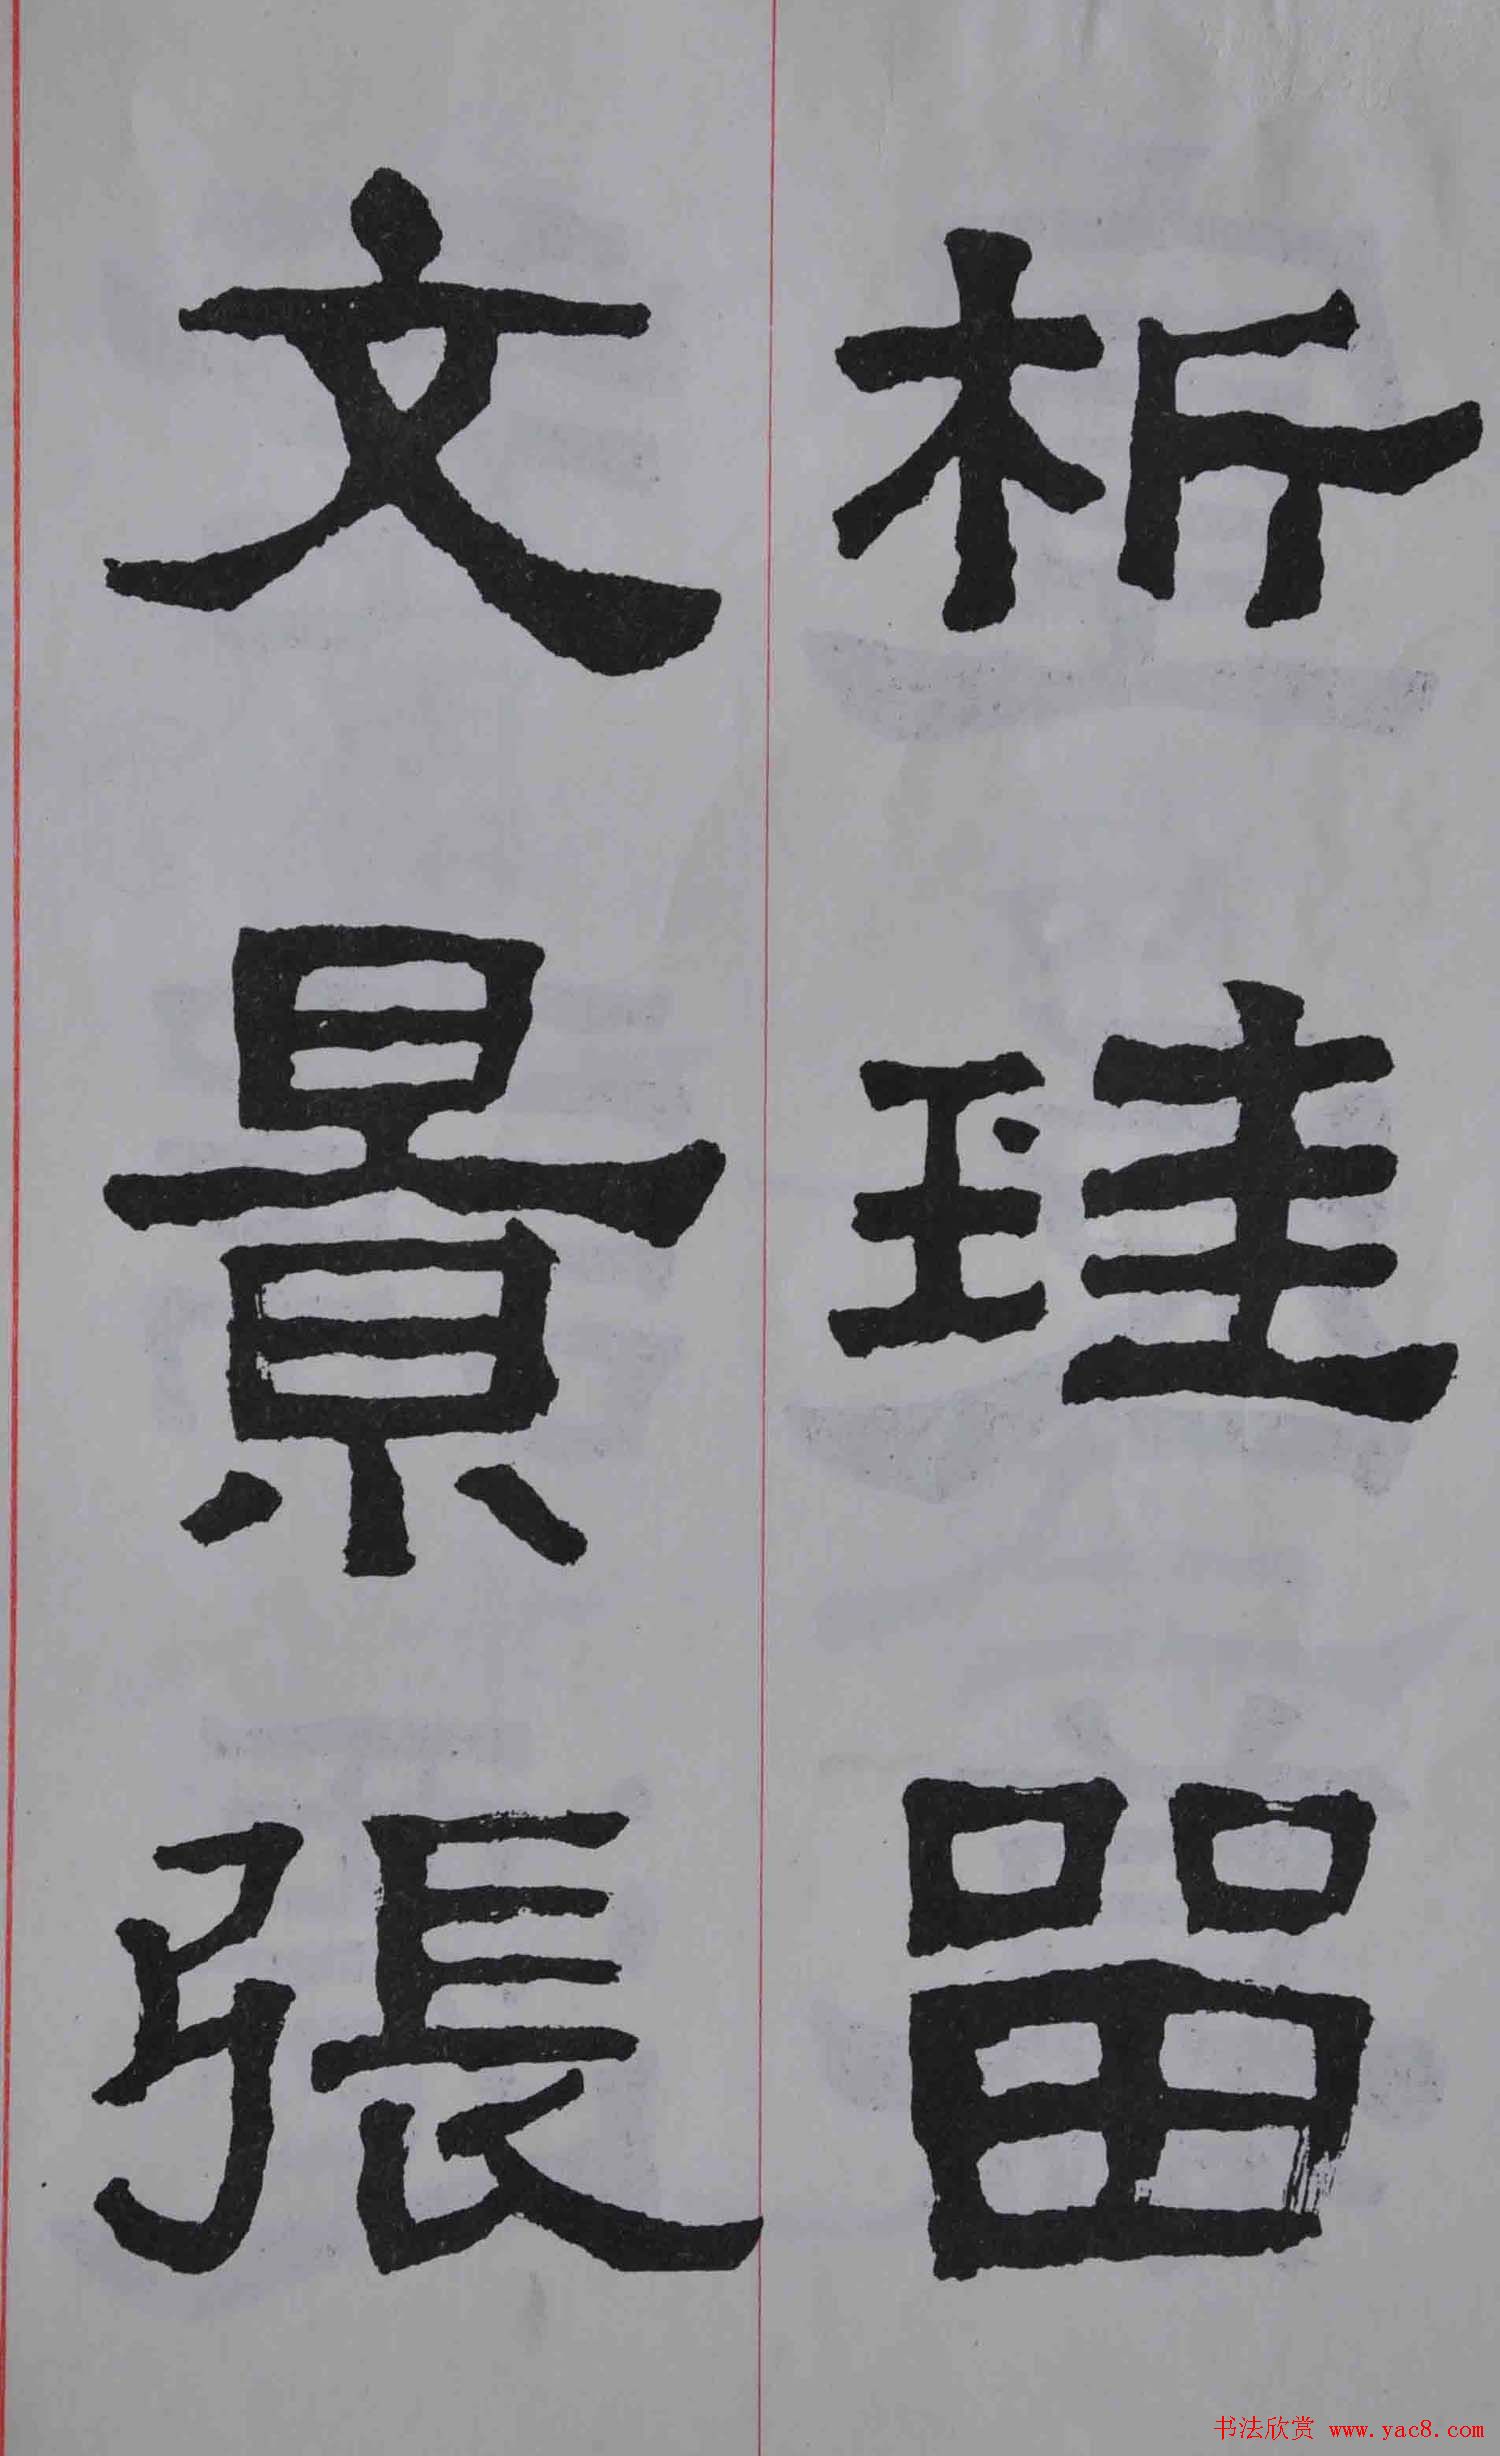 析珪畱
文景張
书法欣赏 www.yac8.com